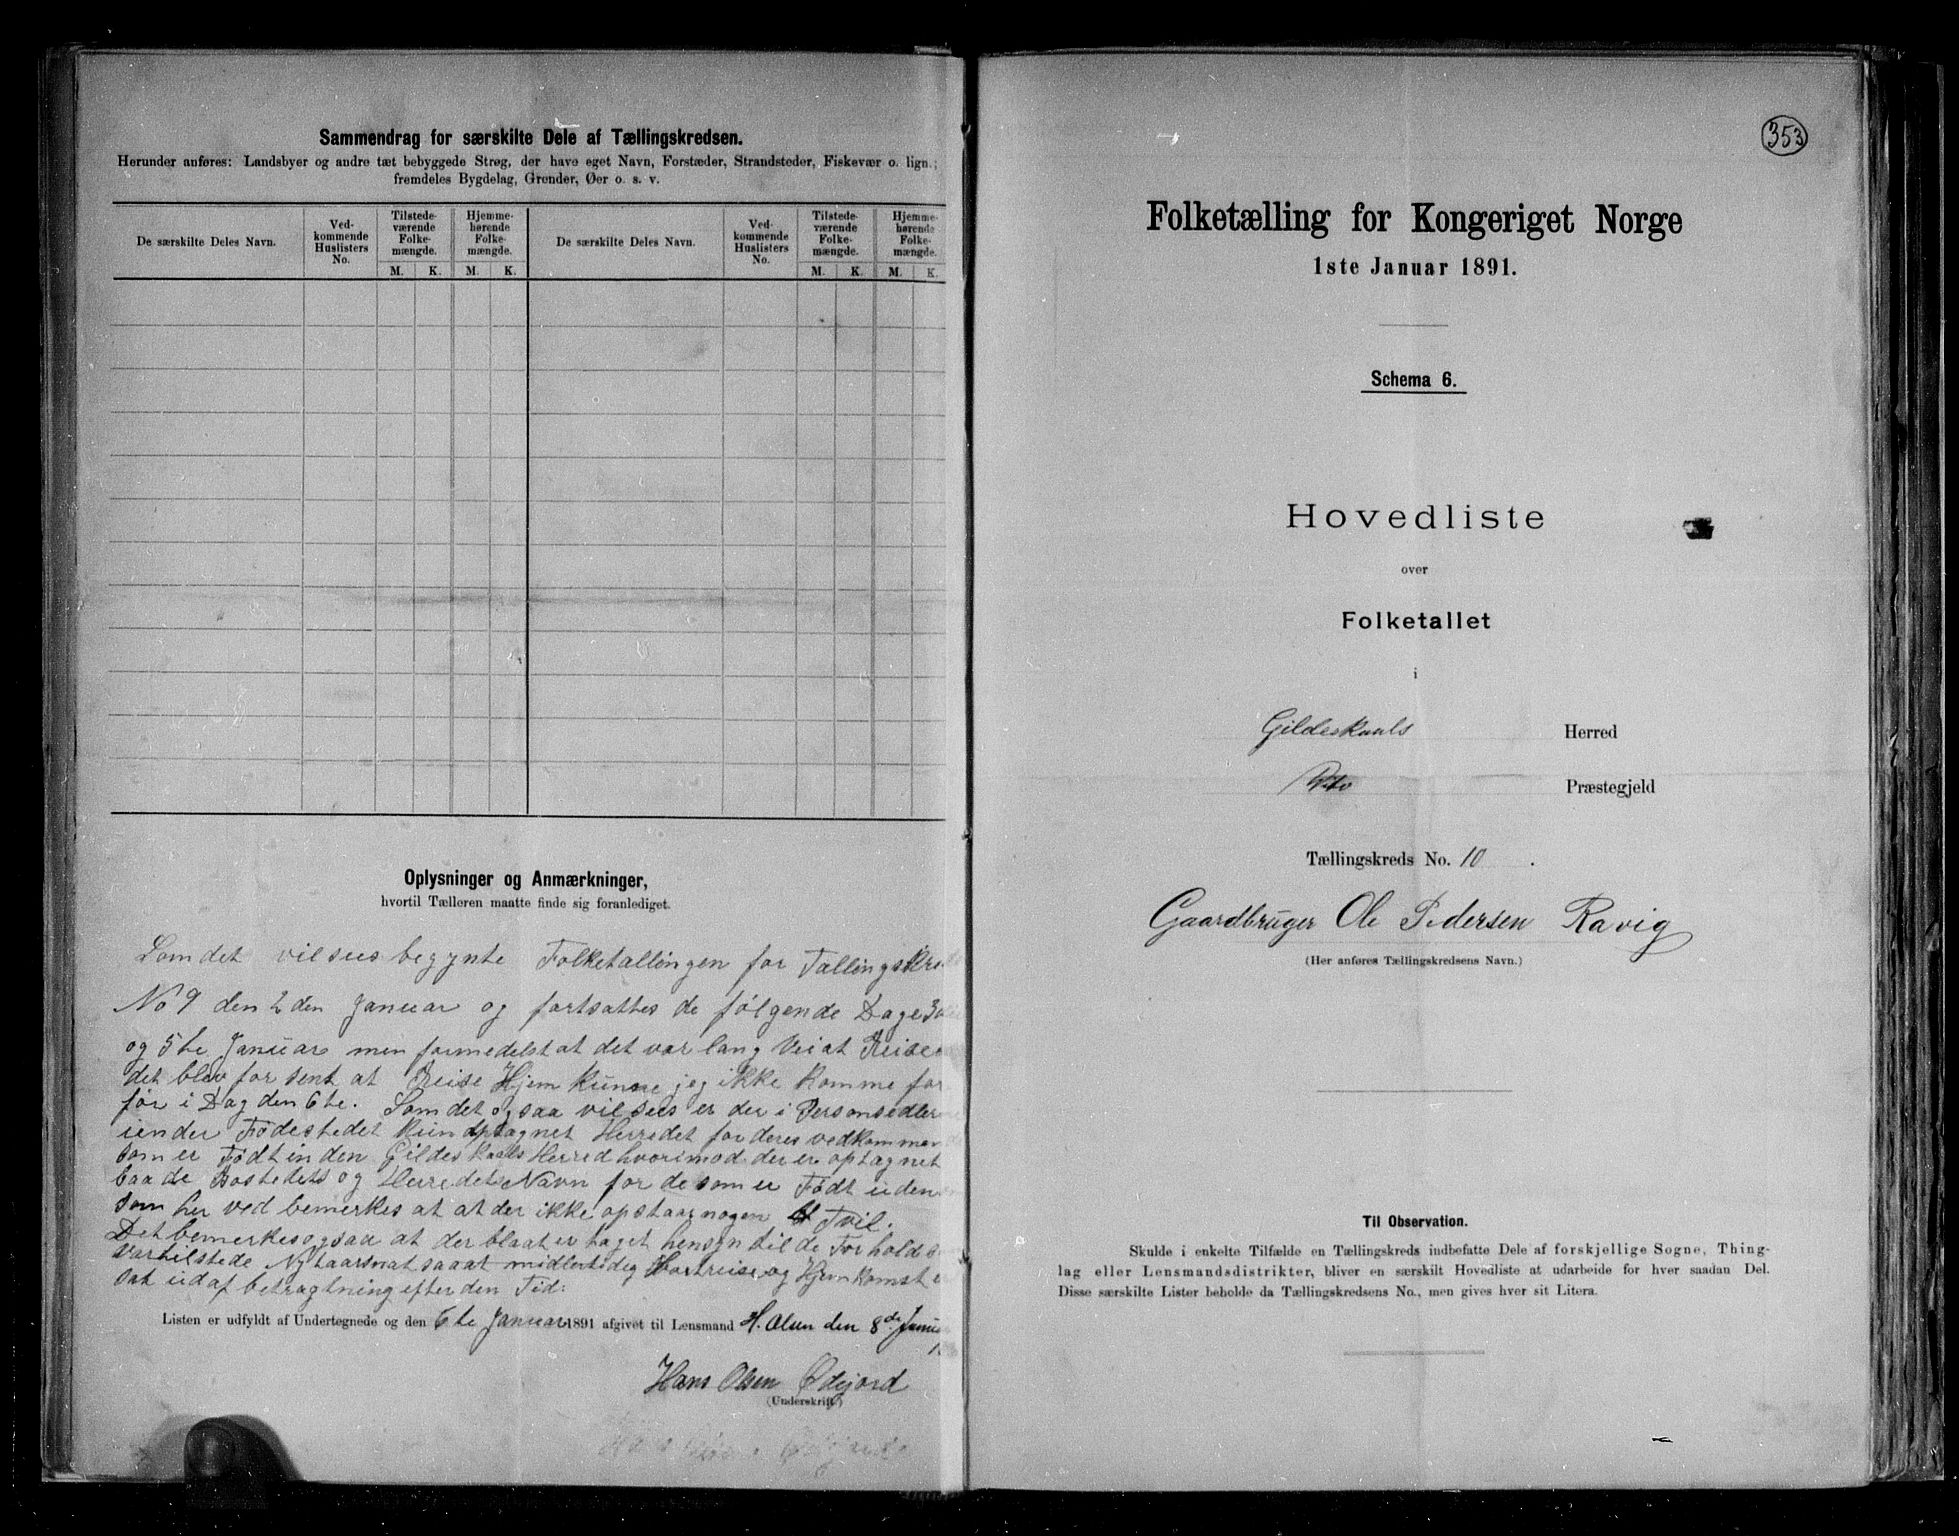 Sammendrag for særskilte Dele af Tællingskredsen.
Herunder anføres: Landsbyer og andre tæt bebyggede Strøg, der have eget Navn, Forstæder, Strandsteder, Fiskevær o. lign.;
fremdeles Bygdelag, Grender, Øer o. s. v.
De særskilte Deles Navn.
Ved-
kommende
Huslisters
No.
Tilstede-
værende
Folke-
mængde.
Hjemme-
hørende
Folke-
mængde.
M. K. M. K.
De særskilte Deles Navn.
Ved-
kommende
Huslisters
No.
Tilstede-
værende
Folke-
mængde.
Hjemme-
hørende
Folke-
mængde.
M. K. M. K.
Oplysninger og Anmærkninger,
hvortil Tælleren maatte finde sig foranlediget.
Som det vil sees begynte Folketællingen for
No 9 den 2 den Januar og fortsattes de følgende Dage
og 5te Januar men formedelst at det var lang Vei at Reise
det blev for sent at Reise Hjem kunne jeg ikke komme for
før i Dag den 6te. Som det ogsaa vil sees er der i
under Fødestedet kun optagnet Herredet for deres
som er Født inden Gildeskaals Herred hvorimod der er optagnet
baade Bostedets og Herredets Navn for de som er Født uden
som her ved bemerkes at at der ikke opstaar nogen Tvil.
Det bemerkes ogsaa at der blaat er taget hensyn til de
var tilstede Nytaarsnat saaat midlertidig Bortreise og
sat ud af betragtning efter den Tid.
Listen er udfyldt af Undertegnede og den 6te Januar 1891 afgivet til Lensmand H. Olsen den 8de
Hans Olsen Ødejord
(Underskrift)
353
Folketælling for Kongeriget Norge
1ste Januar 1891.
Schema 6.
Hovedliste
over
Folketallet
i
Gildeskaals Herred
Dito Præstegjeld
Tællingskreds No. 10.
Gaardbruger Ole Pedersen Ravig
(Her anføres Tællingskredsens Navn.)
Til Observation.
Skulde i enkelte Tilfælde en Tællingskreds indbefatte Dele af forskjellige Sogne, Thing-
lag eller Lensmandsdistrikter, bliver en særskilt Hovedliste at udarbeide for hver saadan Del.
Disse særskilte Lister beholde da Tællingskredsens No., men gives hver sit Litera.